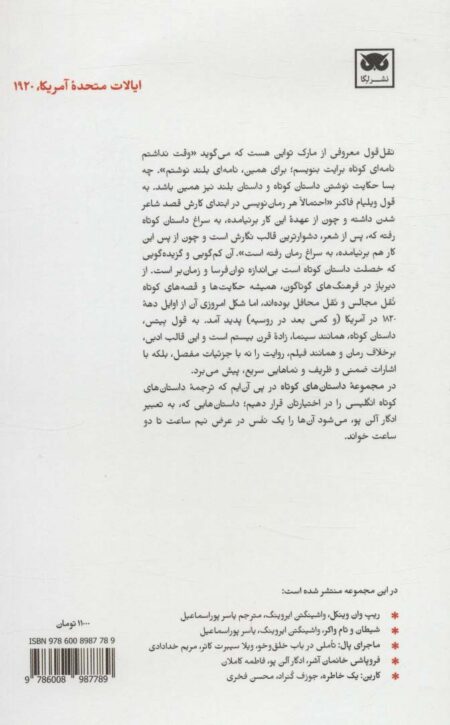 نشر لگا
ایالات متحدهٔ آمریکا، ۱۹۲۰
نقل‌قول معروفی از مارک تواین هست که می‌گوید «وقت نداشتم
نامه‌ای کوتاه برایت بنویسم؛ برای همین، نامه‌ای بلند نوشتم». چه
بسا حکایت نوشتن داستان کوتاه و داستان بلند نیز همین باشد. به
قول ویلیام فاکنر «احتمالاً هر رمان‌نویسی در ابتدای کارش قصد شاعر
شدن داشته و چون از عهدهٔ این کار برنیامده، به سراغ داستان کوتاه
رفته که، پس از شعر، دشوارترین قالب نگارش است و چون از پس این
کار هم برنیامده، به سراغ رمان رفته است». آن کم‌گویی و گزیده‌گویی
که خصلت داستان کوتاه است بی‌اندازه توان‌فرسا و زمان‌بر است. از
دیرباز در فرهنگ‌های گوناگون، همیشه حکایت‌ها و قصه‌های کوتاه
نُقل مجالس و نقل محافل بوده‌اند، اما شکل امروزی آن از اوایل دههٔ
۱۸۲۰ در آمریکا (و کمی بعد در روسیه) پدید آمد. به قول بیتس،
داستان کوتاه، همانند سینما، زادهٔ قرن بیستم است و این قالب ادبی،
برخلاف رمان و همانند فیلم، روایت را نه با جزئیات مفصل، بلکه با
اشارات ضمنی و ظریف و نماهایی سریع، پیش می‌برد.
در مجموعهٔ داستان‌های کوتاه در پی آن‌ایم که ترجمهٔ داستان‌های
کوتاه انگلیسی را در اختیارتان قرار دهیم؛ داستان‌هایی که، به تعبیر
ادگار آلن پو، می‌شود آن‌ها را یک نفس در عرض نیم ساعت تا دو
ساعت خواند.
در این مجموعه منتشر شده است:
* ریپ وان وینکل، واشینگتن ایروینگ، مترجم یاسر پوراسماعیل
* شیطان و تام واکر، واشینگتن ایروینگ، یاسر پوراسماعیل
* ماجرای پال: تأملی در باب خلق‌وخو، ویلا سیبرت کاتر، مریم خدادادی
* فروپاشی خانمان آشر، ادگار آلن پو، فاطمه کاملان
* کارین: یک خاطره، جوزف کُنراد، محسن فخری
۱۱۰۰۰ تومان
ISBN 978 600 8987 78 9
9 786008 987789